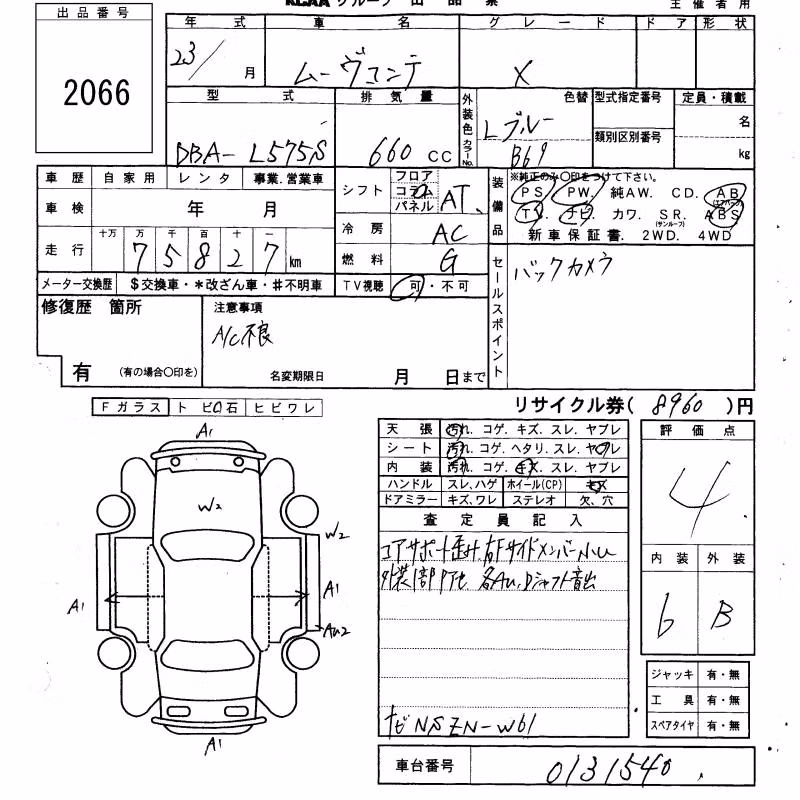 KCAA グループ 出品票
主催者用
出品番号
2066
年式 車名 グレード ドア 形状
23/ 月 ムーヴコンテ X
型式 排気量 外装色 カラーNo. 色替 型式指定番号 定員・積載
DBA-L575S 660 cc Lブルー B69 類別区別番号 名 kg
車歴 自家用 レンタ 事業.営業車
車検 年 月
走行 十万 万 千 百 十 一
7 5 8 2 7 km
メーター交換歴 $交換車・*改ざん車・#不明車
シフト フロア コラム パネル AT
冷房 AC
燃料 G
TV視聴 可・不可
装備品 ※純正のみ○印をつけて下さい。
PS PW. 純AW. CD. AB (エアバック)
TV. ナビ. カワ. SR. (サンルーフ) ABS
新車保証書. 2WD. 4WD
セールスポイント
バックカメラ
修復歴 箇所
有 (有の場合○印を)
注意事項
A/C不良
名変期限日 月 日まで
リサイクル券( 8960 )円
Fガラス トビ石 ヒビワレ
天張 汚れ. コゲ. キズ. スレ. ヤブレ
シート 汚れ. コゲ. ヘタリ. スレ. ヤブレ
内装 汚れ. コゲ. キズ. スレ. ヤブレ
ハンドル スレ.ハゲ ホイール(CP) キズ
ドアミラー キズ.ワレ ステレオ 欠.穴
査定員記入
コアサポート歪み 右Fサイドメンバー小U
外装1部 各AU, Dシャフト音出
ナビNSZN-W61
評価点
4
内装 外装
6 B
ジャッキ 有・無
工具 有・無
スペアタイヤ 有・無
車台番号 0131540
A1
W2
W2
A1
A1
AU2
A1